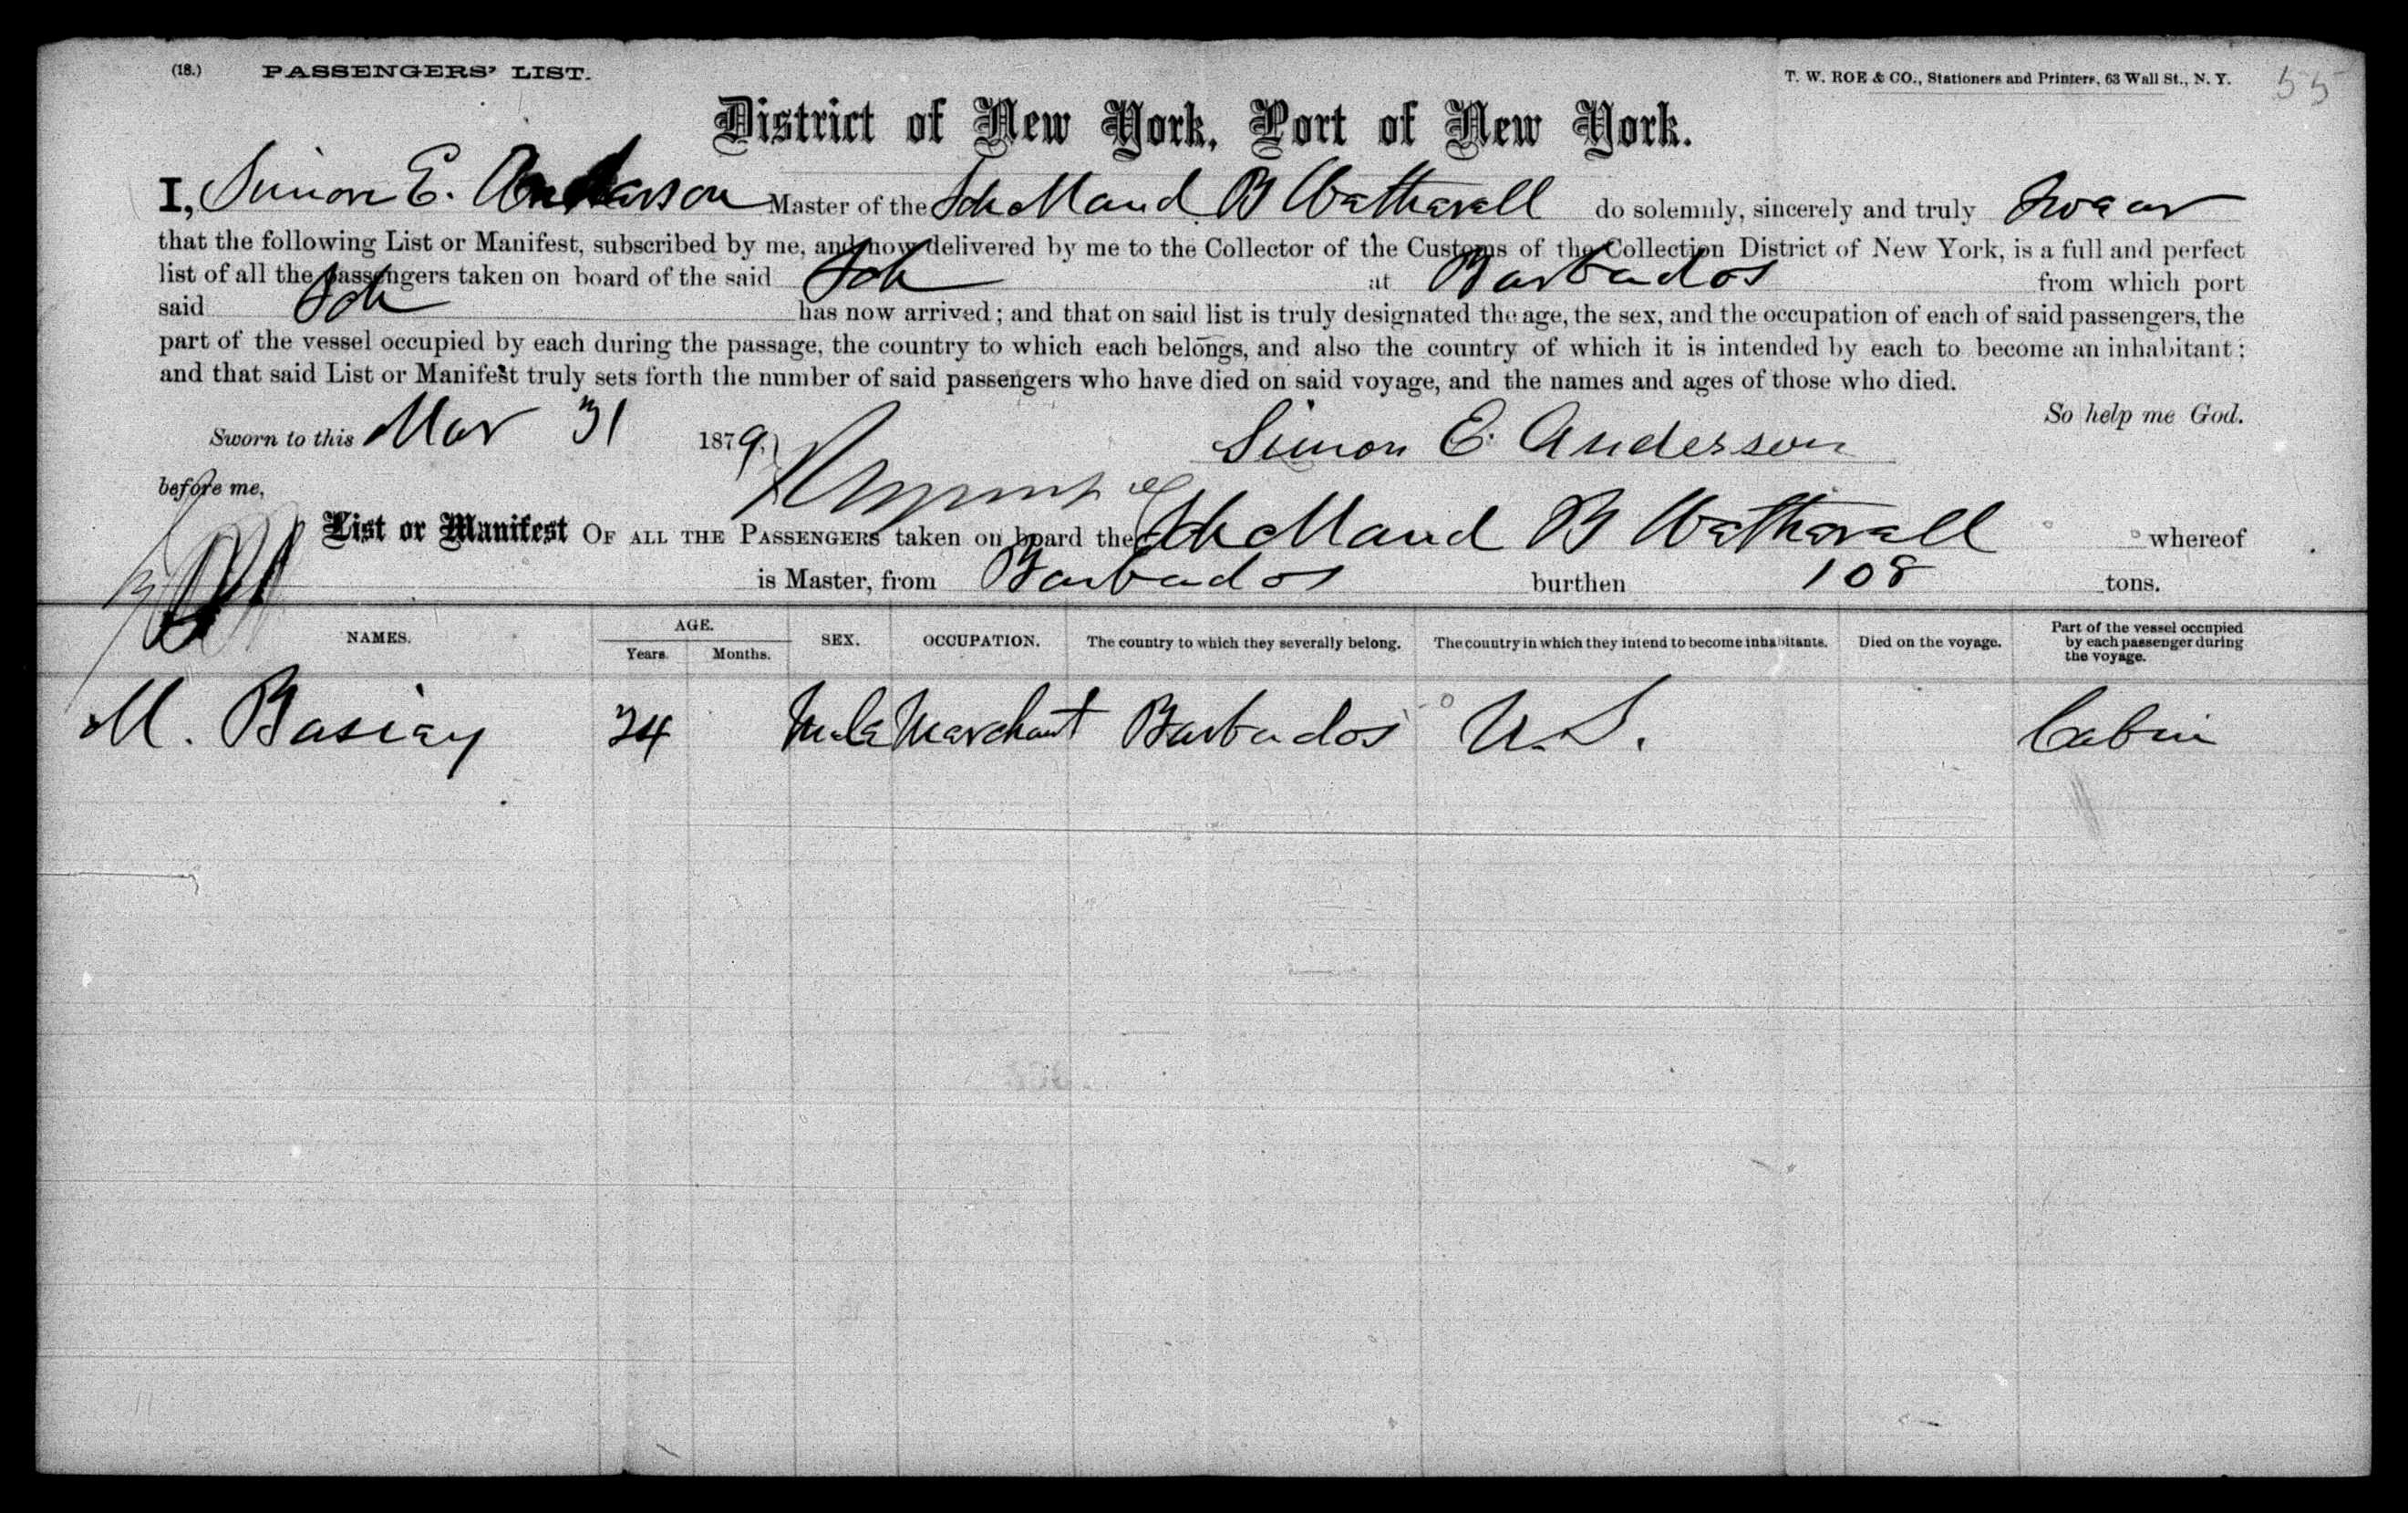 (18.) PASSENGERS' LIST. T. W. ROE & CO., Stationers and Printers, 63 Wall St., N. Y. 55
District of New York, Port of New York.
I, Simon E. Anderson Master of the Sch Maud B Wetherell do solemnly, sincerely and truly Swear
that the following List or Manifest, subscribed by me, and now delivered by me to the Collector of the Customs of the Collection District of New York, is a full and perfect
list of all the passengers taken on board of the said Sch at Barbados from which port
said Sch has now arrived; and that on said list is truly designated the age, the sex, and the occupation of each of said passengers, the
part of the vessel occupied by each during the passage, the country to which each belongs, and also the country of which it is intended by each to become an inhabitant;
and that said List or Manifest truly sets forth the number of said passengers who have died on said voyage, and the names and ages of those who died.
So help me God.
Sworn to this Mar 31 1879, Simon E. Anderson
before me,
List or Manifest OF ALL THE PASSENGERS taken on board the Sch Maud B Wetherell whereof
is Master, from Barbados burthen 108 tons.
NAMES. AGE. Years. Months. SEX. OCCUPATION. The country to which they severally belong. The country in which they intend to become inhabitants. Died on the voyage. Part of the vessel occupied by each passenger during the voyage.
M. Male Merchant Barbados U.S. Cabin